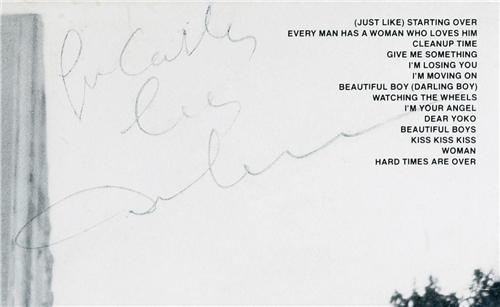 (JUST LIKE) STARTING OVER
EVERY MAN HAS A WOMAN WHO LOVES HIM
CLEANUP TIME
GIVE ME SOMETHING
I'M LOSING YOU
I'M MOVING ON
BEAUTIFUL BOY (DARLING BOY)
WATCHING THE WHEELS
I'M YOUR ANGEL
DEAR YOKO
BEAUTIFUL BOYS
KISS KISS KISS
WOMAN
HARD TIMES ARE OVER